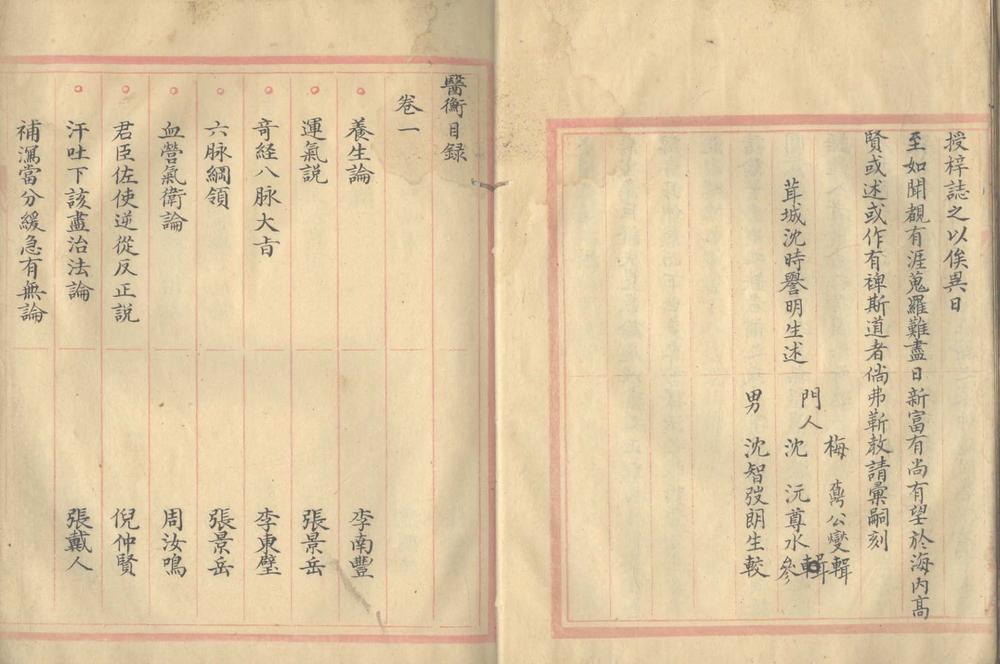 授梓誌之以俟異日
至如聞覩有涯蒐羅難盡日新富有尚有望於海內高
賢或述或作有裨斯道者倘弗靳敢請彙嗣刻
茸城沈時譽明生述
門人
梅鼒公燮輯
沈沅尊水參輯
男沈智弢朗生較
醫衡目録
卷一
養生論 李南豐
運氣説 張景岳
竒経八脉大旨 李東璧
六脉綱領 張景岳
血營氣衛論 周汝鳴
君臣佐使逆從反正説 倪仲賢
汗吐下該盡治法論 張戴人
補瀉當分緩急有無論